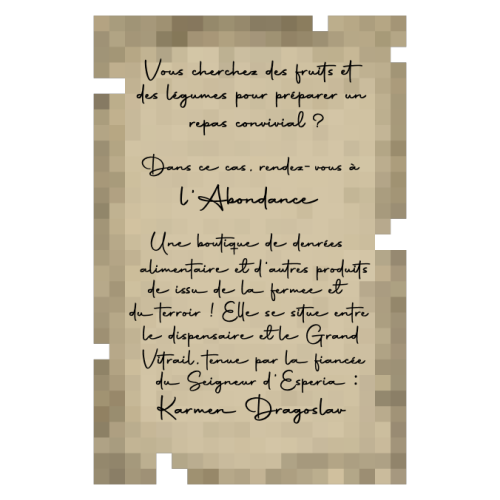 Vous cherchez des fruits et
des légumes pour préparer un
repas convivial ?
Dans ce cas, rendez-vous à
l'Abondance
Une boutique de denrées
alimentaire et d'autres produits
de issu de la fermee et
du terroir ! Elle se situe entre
le dispensaire et le Grand
Vitrail, tenue par la fiancée
du Seigneur d'Esperia :
Karmen Dragoslav